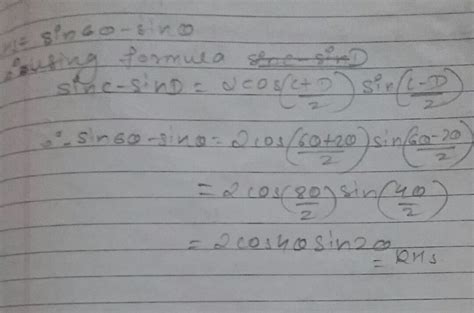 = sin6θ-sinθ
using formula sinc-sinD
sinc-sinD = 2cos(C+D/2) sin(C-D/2)
∴ sin6θ-sinθ = 2cos(6θ+2θ/2) sin(6θ-2θ/2)
= 2cos(8θ/2) sin(4θ/2)
= 2cos4θ sin2θ
= RHS